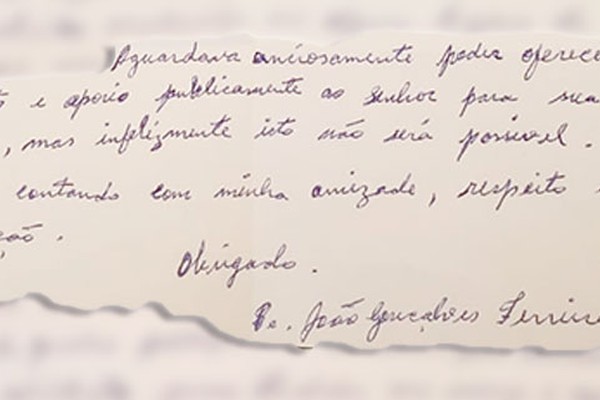 Aguardava anciosamente poder oferece
e apoio publicamente ao senhor para sua
, mas infelizmente isto não será possível.
contando com minha amizade, respeito
ção.
Obrigado.
Pe. João Gonçalves Ferreira